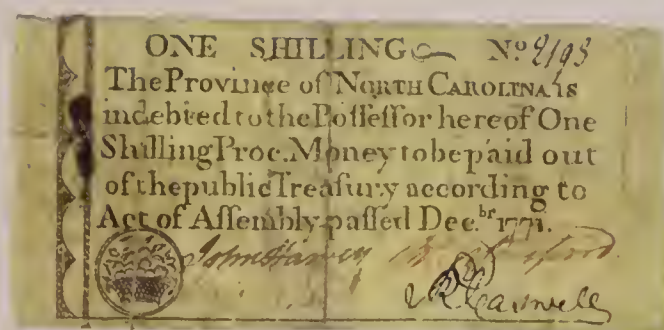 ONE SHILLING No
The Province of NORTH CAROLINA is
indebted to the Poſſeſſor hereof One
Shilling Proc. Money to be paid out
of the public Treaſury according to
Act of Aſſembly paſſed Dec.br 1771.
John Harvey
R Caswell